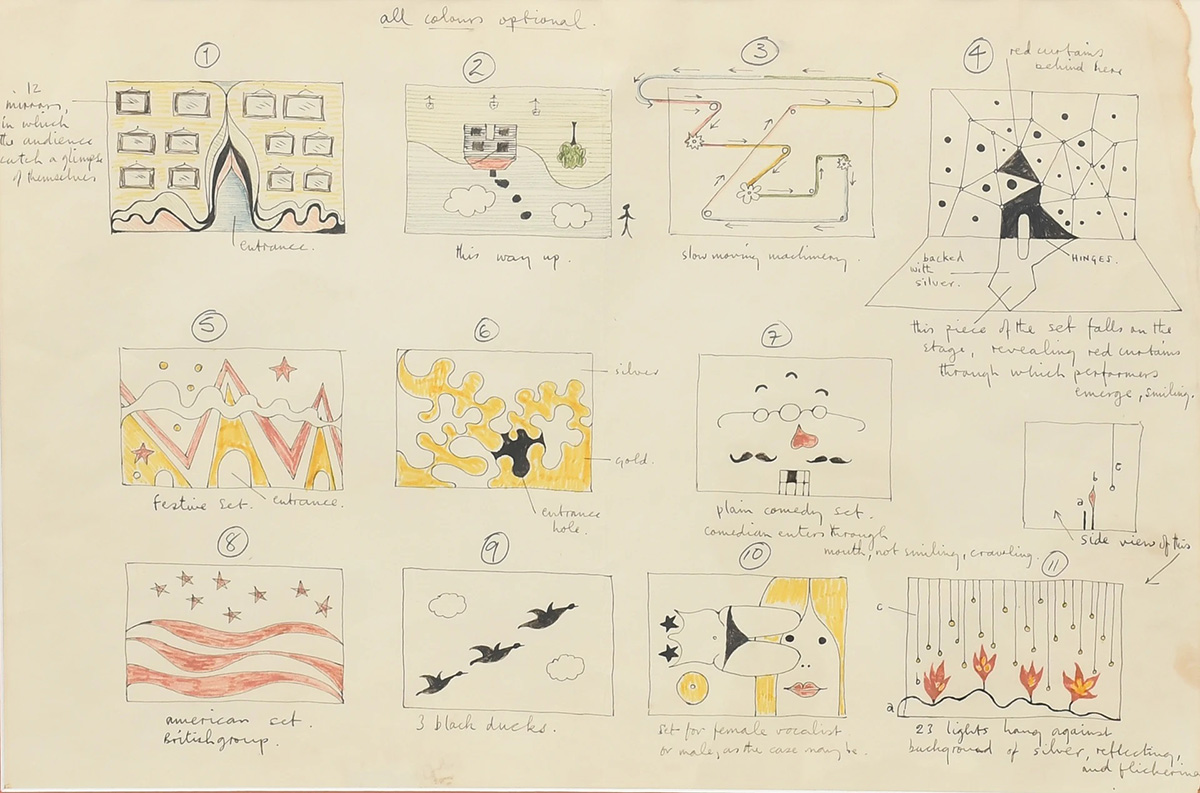 all colours optional.
1
12
mirrors,
in which
the audience
catch a glimpse
of themselves
entrance.
2
this way up.
3
slow moving machinery.
4
red curtains
behind here
backed
with
silver.
HINGES.
this piece of the set falls on the
stage, revealing red curtains
through which performers
emerge, smiling.
5
festive set.
entrance.
6
silver
gold.
entrance
hole.
7
plain comedy set.
comedian enters through
mouth, not smiling, crawling.
a
b
c
side view of this
8
american set.
British group.
9
3 black ducks.
10
set for female vocalist
or male, as the case may be.
11
c
a
23 lights hang against
background of silver, reflecting,
and flickering